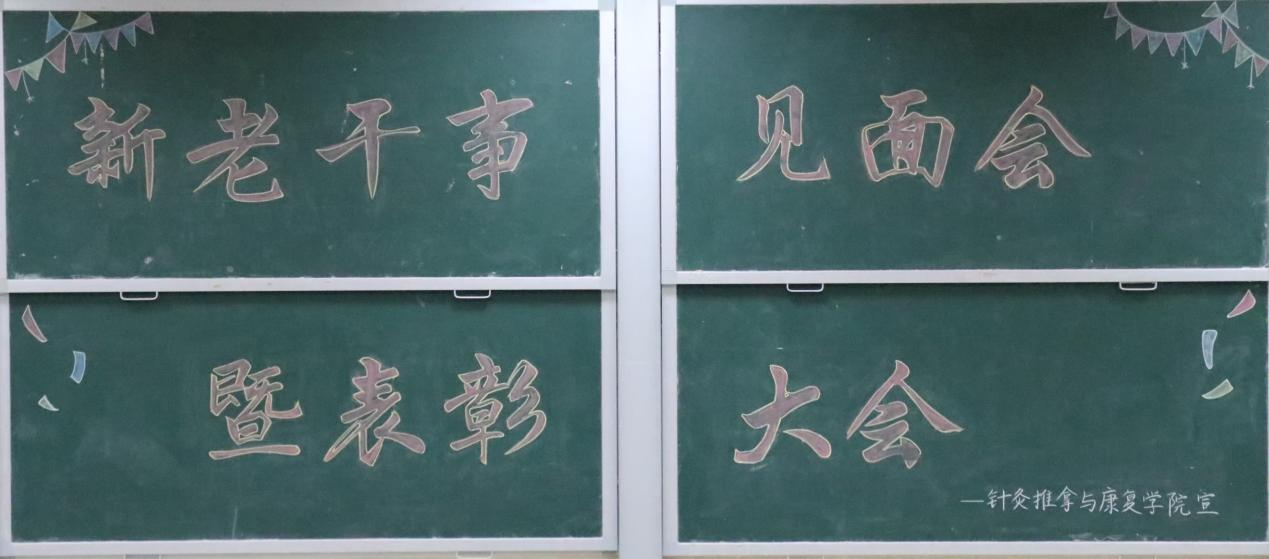 新老干事见面会
暨表彰大会
—针灸推拿与康复学院宣